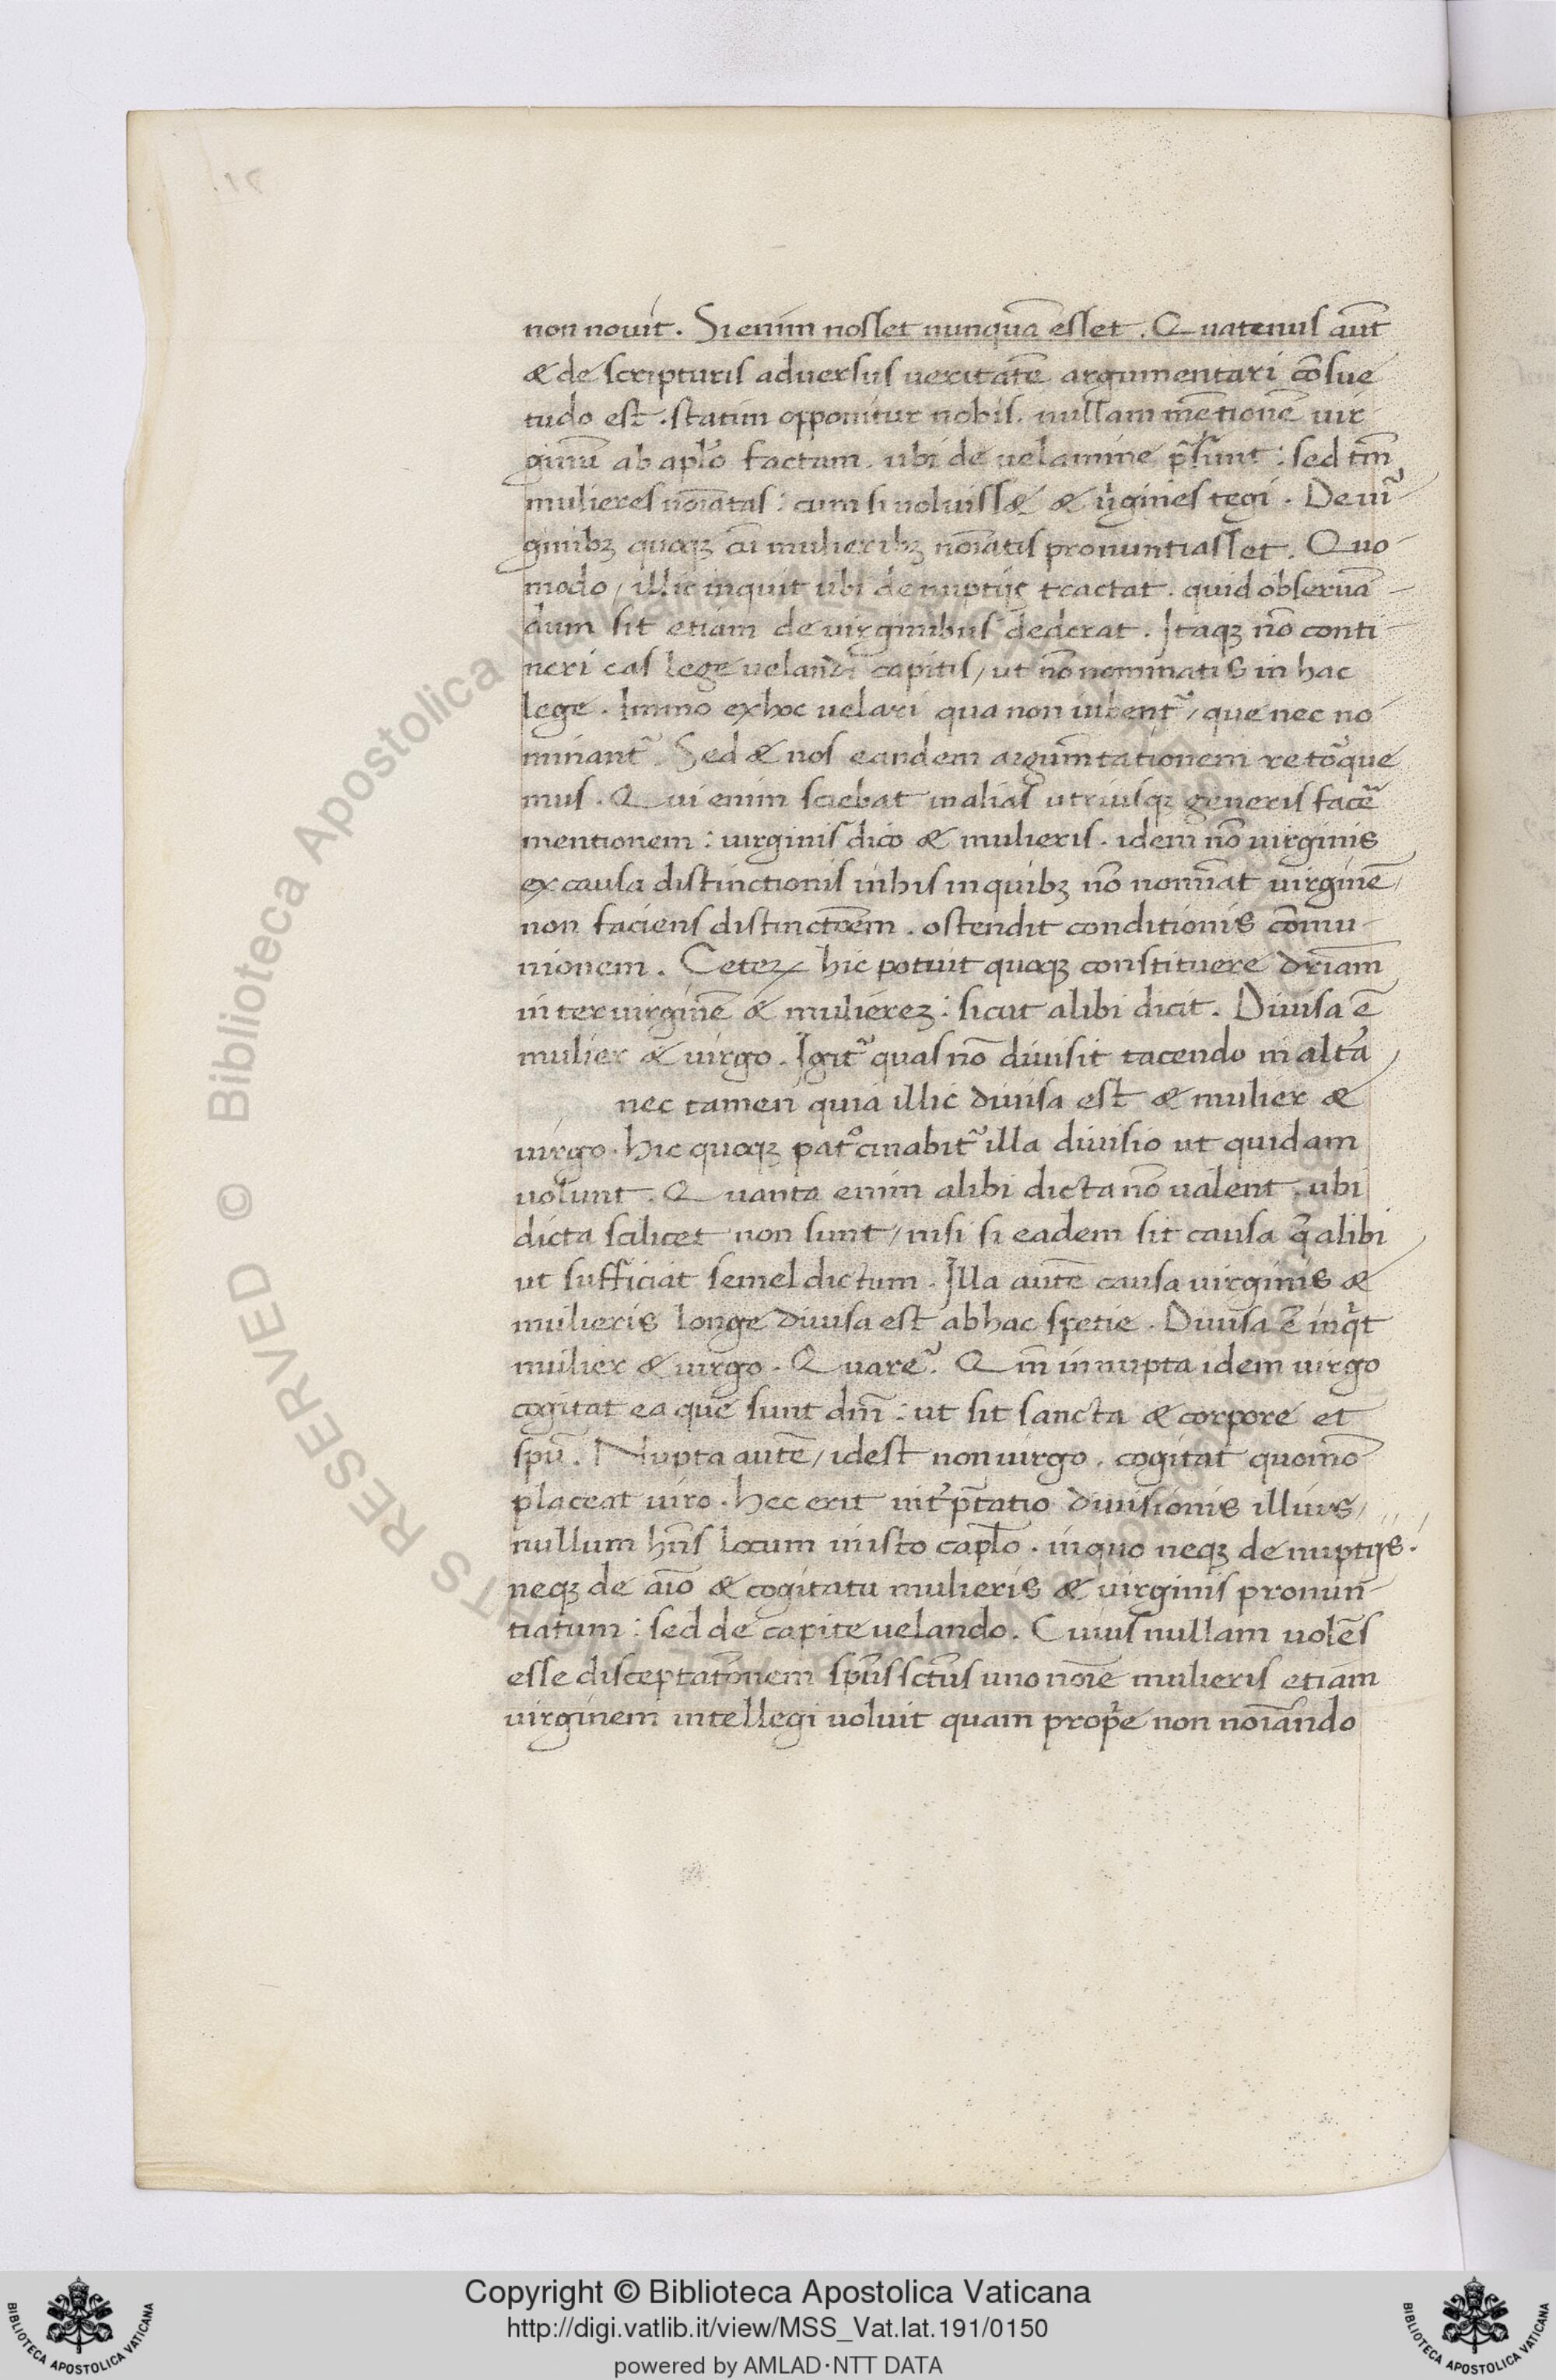 non nouit. Si enim nosset nunquā esset. Quatenus aut̄
& de scripturis aduersus ueritatē argumentari cōsue
tudo est. statim opponitur nobis. nullam mētionē uir
ginū ab aplo factam. ubi de uelamine p̄sunt: sed tm̄
mulieres noīatas: cum si uoluiss& & uirgines tegi. De uir
ginibꝫ quoqꝫ cū mulieribꝫ noīatis pronuntiasset. Quo
modo / illic inquit ubi de nuptijs tractat. quid obseruā
dum sit etiam de virginibus dederat. Itaqꝫ nō conti
neri eas lege uelandi capitis / ut nō nominatis in hac
lege. Immo ex hoc uelari qua non iubent᷑ / que nec no
minant᷑. Sed & nos eandem argum̄tationem retor̄que
mus. Qui enim sciebat in alias utriusqꝫ generis facē
mentionem: uirginis dico & mulieris. idem nō uirginis
ex causa distinctionis in his in quibꝫ nō nominat uirginē /
non faciens distinctōem. ostendit conditionis cōmu
nionem. Ceteꝝ hic potuit quoqꝫ constituere dr̄iam
inter uirginē & mulierez: sicut alibi dicit. Diuisa ē
mulier & uirgo. Igit᷑ quas nō diuisit tacendo in alt̄a
nec tamen quia illic diuisa est & mulier &
uirgo. hic quoqꝫ patͦcinabit᷑ illa diuisio ut quidam
uolunt. Quanta enim alibi dicta nō ualent. ubi
dicta scilicet non sunt / nisi si eadem sit causa q̄ alibi
ut sufficiat semel dictum. Illa autē causa uirginis &
mulieris longe diuisa est ab hac spetie. Diuisa ē inqͥt
mulier & uirgo. Quare? Qm̄ innupta idem uirgo
cogitat ea que sunt dn̄i: ut sit sancta & corpore et
spū. Nupta autē / idest non uirgo. cogitat quomō
placeat uiro. hec erit int᷑p̄tatio diuisionis illius /
nullum hn̄s locum in isto caplo. in quo neqꝫ de nuptijs.
neqꝫ de aīo & cogitatu mulieris & uirginis pronun
tiatum: sed de capite uelando. Cuius nullam uolēs
esse disceptatōnem spūs sctūs uno noīe mulieris etiam
virginem intellegi uoluit quam propͥe non noīando
Copyright © Biblioteca Apostolica Vaticana
http://digi.vatlib.it/view/MSS_Vat.lat.191/0150
powered by AMLAD·NTT DATA